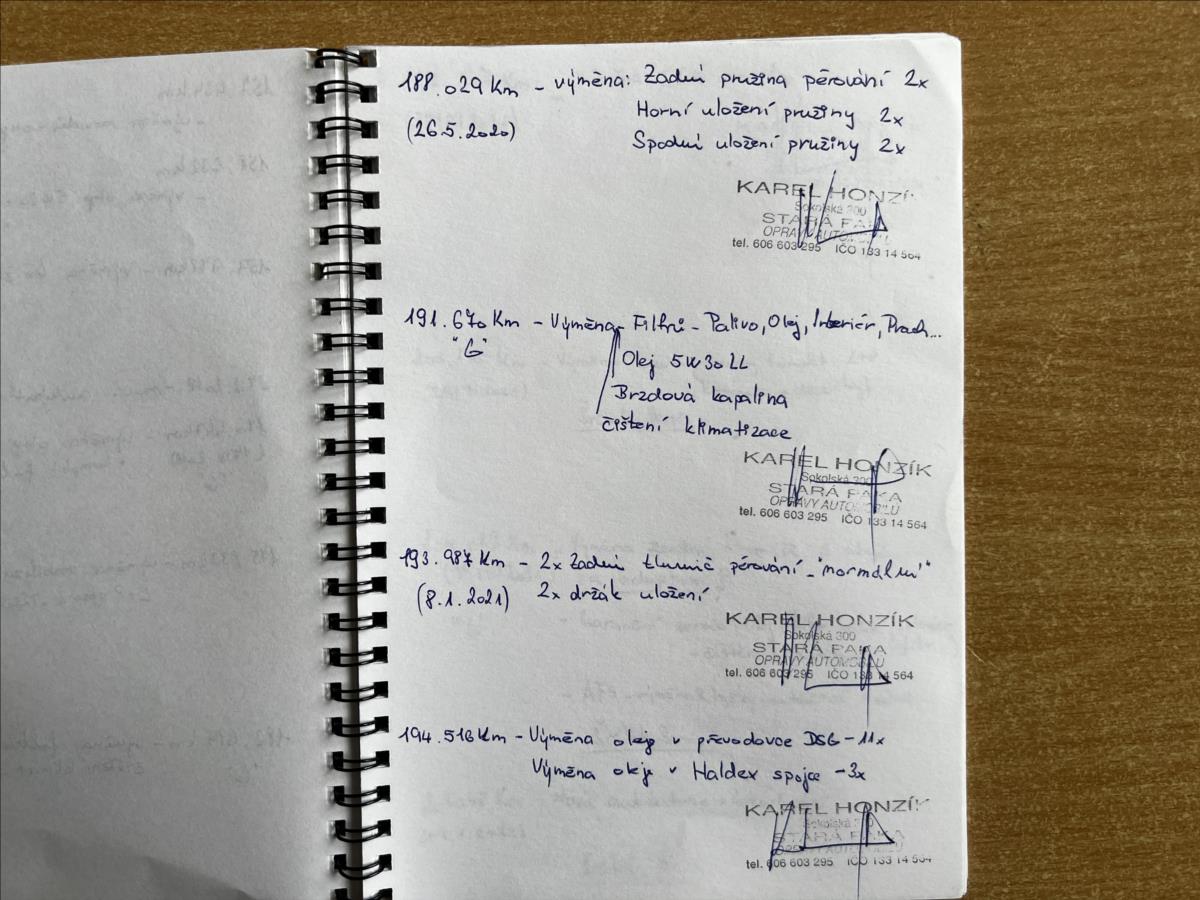 188.029 Km - výměna: Zadní pružina pérování 2x
(26.5.2020) Horní uložení pružiny 2x
Spodní uložení pružiny 2x
KAREL HONZÍK
Sokolská 300
STARÁ PAKA
OPRAVY AUTOMOBILŮ
tel. 606 603 295 IČO 133 14 564
191.670 Km - Výměna - Filtrů - Palivo, Olej, Interiér, Prach...
"6" Olej 5W30 LL
Brzdová kapalina
čištění klimatizace
KAREL HONZÍK
Sokolská 300
STARÁ PAKA
OPRAVY AUTOMOBILŮ
tel. 606 603 295 IČO 133 14 564
193.987 Km - 2x Zadní tlumič pérování - "normální"
(8.1.2021) 2x držák uložení
KAREL HONZÍK
Sokolská 300
STARÁ PAKA
OPRAVY AUTOMOBILŮ
tel. 606 603 295 IČO 133 14 564
194.516 Km - Výměna oleje v převodovce DSG - 11x
Výměna oleje v Haldex spojce - 3x
KAREL HONZÍK
Sokolská 300
STARÁ PAKA
OPRAVY AUTOMOBILŮ
tel. 606 603 295 IČO 133 14 564